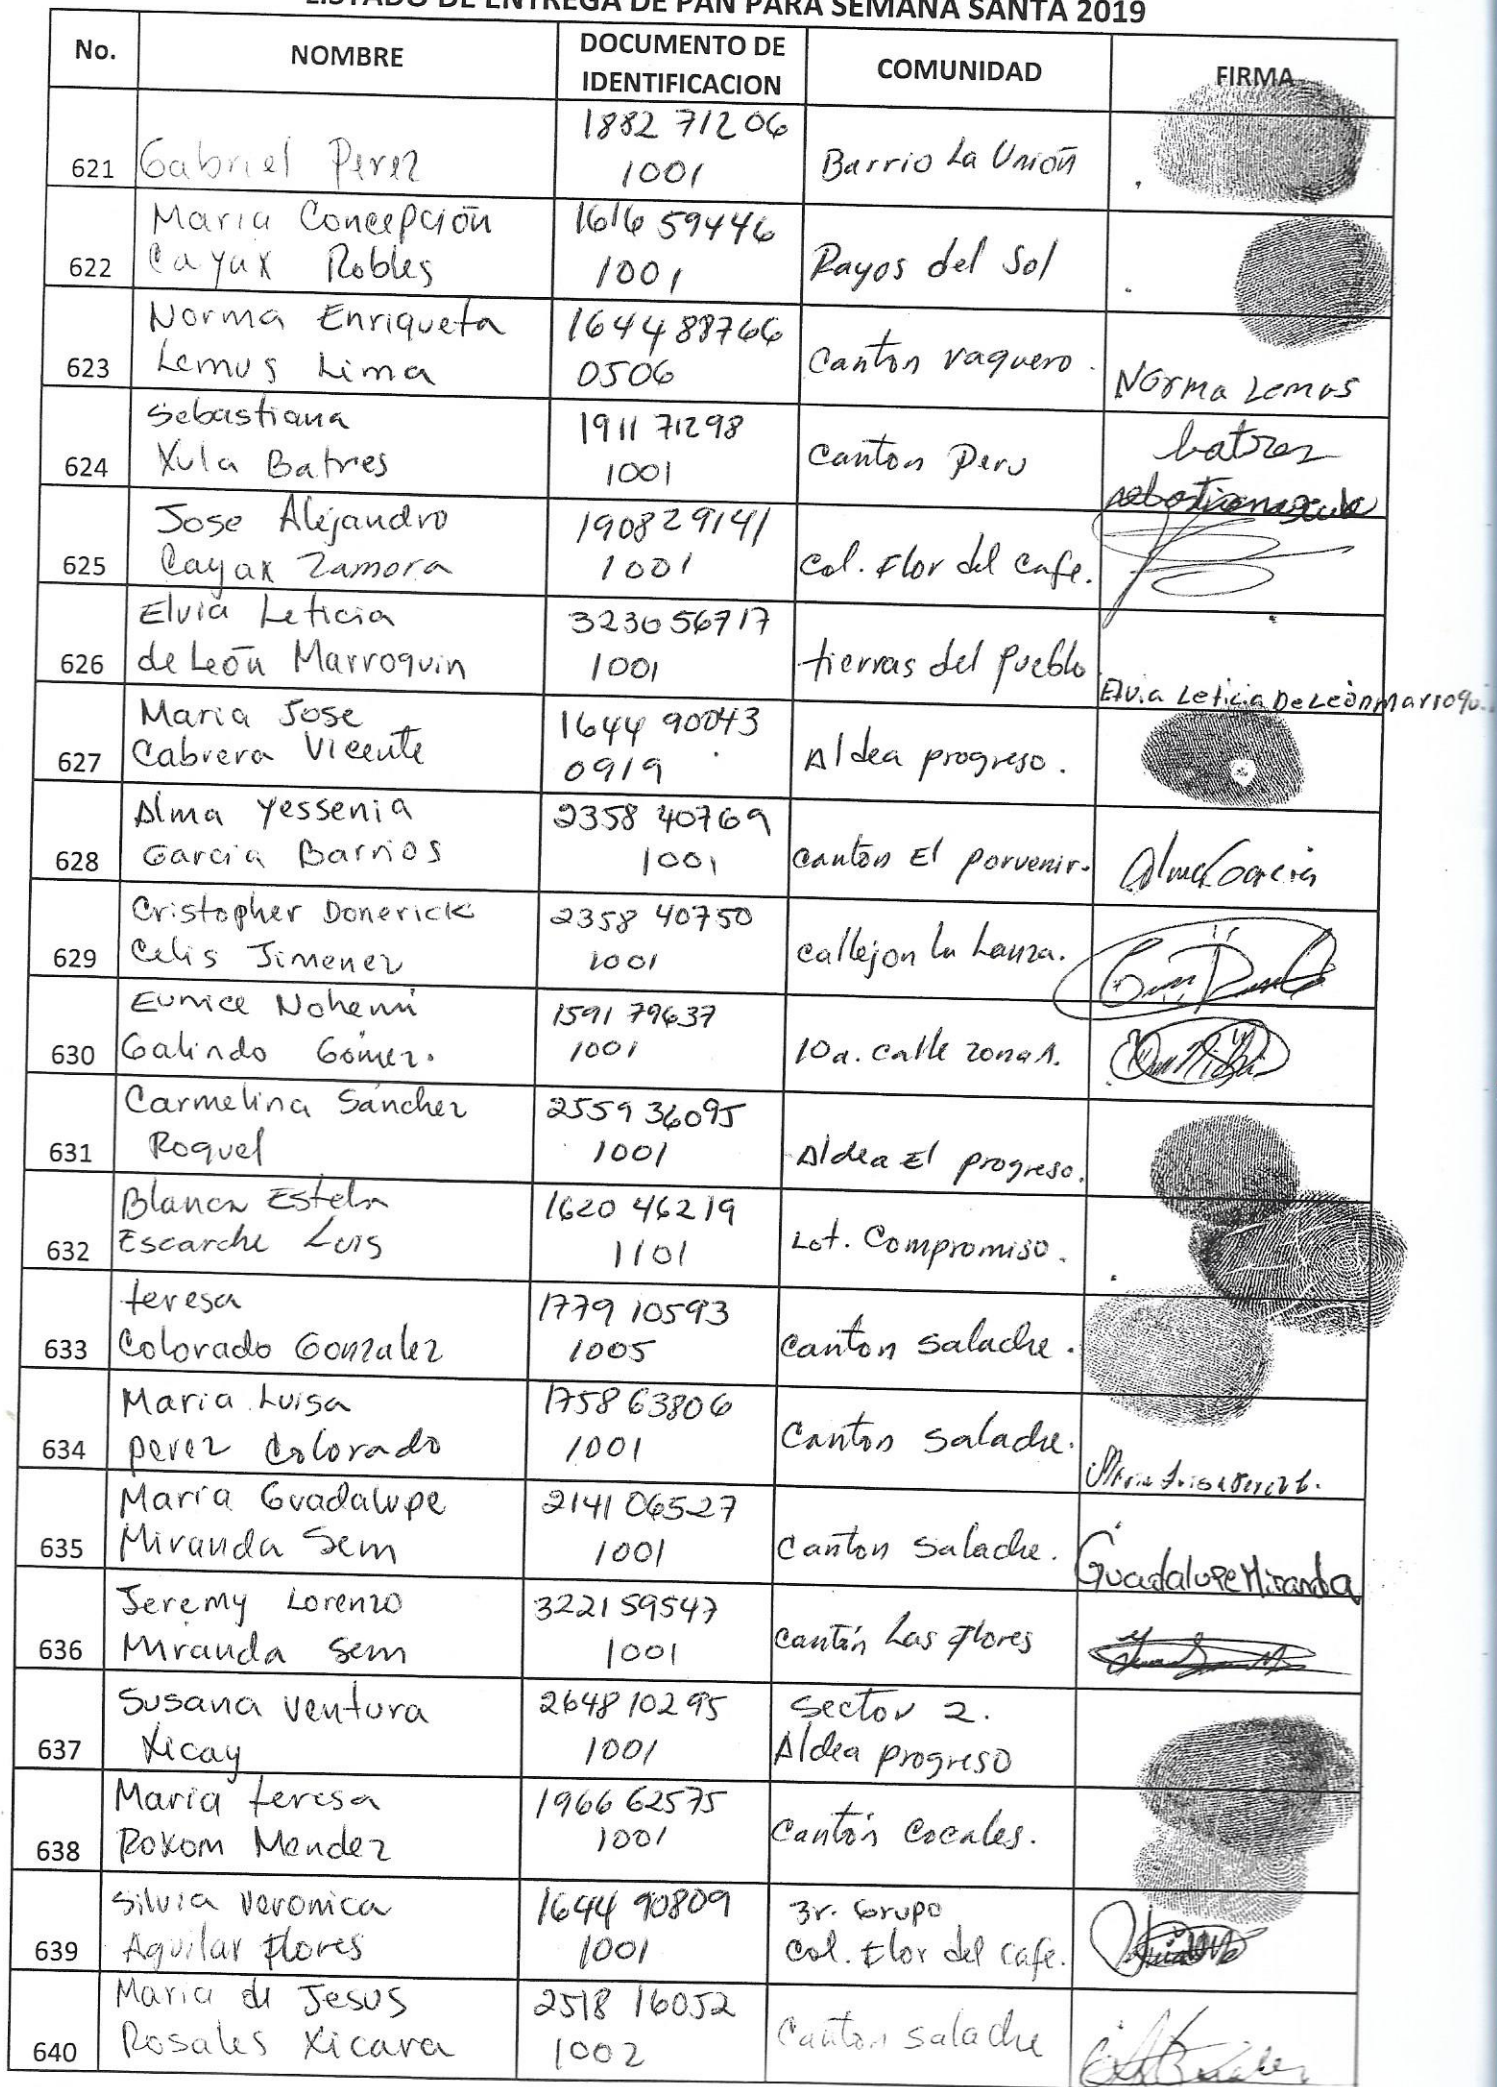 LISTADO DE ENTREGA DE PAN PARA SEMANA SANTA 2019
No. NOMBRE DOCUMENTO DE IDENTIFICACION COMUNIDAD FIRMA
621 Gabriel Perez 1882 71206 1001 Barrio La Unión
622 Maria Concepción Cayax Robles 1616 59446 1001 Rayos del Sol
623 Norma Enriqueta Lemus Lima 1644 88766 0506 Canton vaquero. Norma Lemus
624 Sebastiana Xula Batres 1911 71298 1001 Canton Peru batrez sebastiana xula
625 Jose Alejandro Cayax Zamora 190829141 1001 Col. Flor del Cafe.
626 Elvia Leticia de León Marroquin 3230 56717 1001 tierras del pueblo Elvia Leticia De León Marroqui
627 Maria Jose Cabrera Vicente 1644 90043 0919 Aldea progreso.
628 Alma Yessenia Garcia Barrios 2358 40769 1001 Cantón El porvenir. Alma Garcia
629 Cristopher Donerick Celis Jimenez 2358 40750 1001 Callejon la Lanza.
630 Eunice Nohemi Galindo Gómez. 1591 79637 1001 10a. calle zona 1.
631 Carmelina Sánchez Roquel 2559 36095 1001 Aldea El progreso.
632 Blanca Estela Escarche Luis 1620 46219 1101 Lot. Compromiso.
633 teresa Colorado Gonzalez 1779 10593 1005 Canton Salache.
634 Maria Luisa perez Colorado 1758 63806 1001 Canton Salache.
635 Maria Guadalupe Miranda Sem 2141 06527 1001 Canton Salache. Guadalupe Miranda
636 Jeremy Lorenzo Miranda Sem 3221 59547 1001 Cantón Las Flores
637 Susana Ventura Xicay 2648 10295 1001 Sector 2. Aldea progreso
638 Maria teresa Roxom Mendez 1966 62575 1001 Cantón Cocales.
639 Silvia Veronica Aguilar Flores 1644 90809 1001 3r. Grupo Col. Flor del Cafe.
640 Maria de Jesus Rosales Xicara 2518 16052 1002 Canton Salache